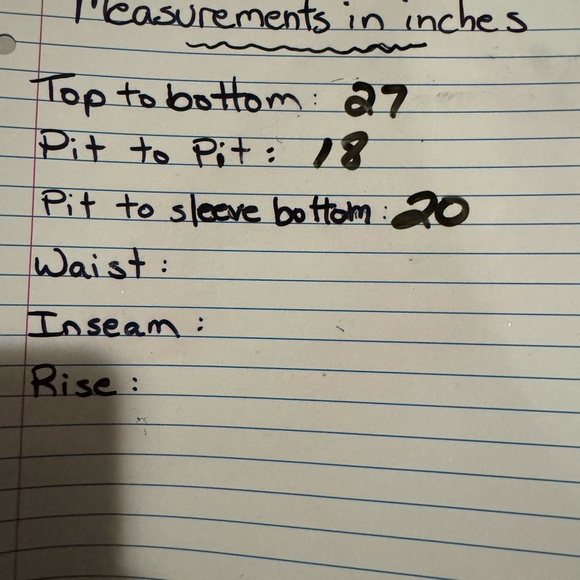 Measurements in inches
Top to bottom: 27
Pit to Pit: 18
Pit to sleeve bottom: 20
Waist:
Inseam:
Rise: